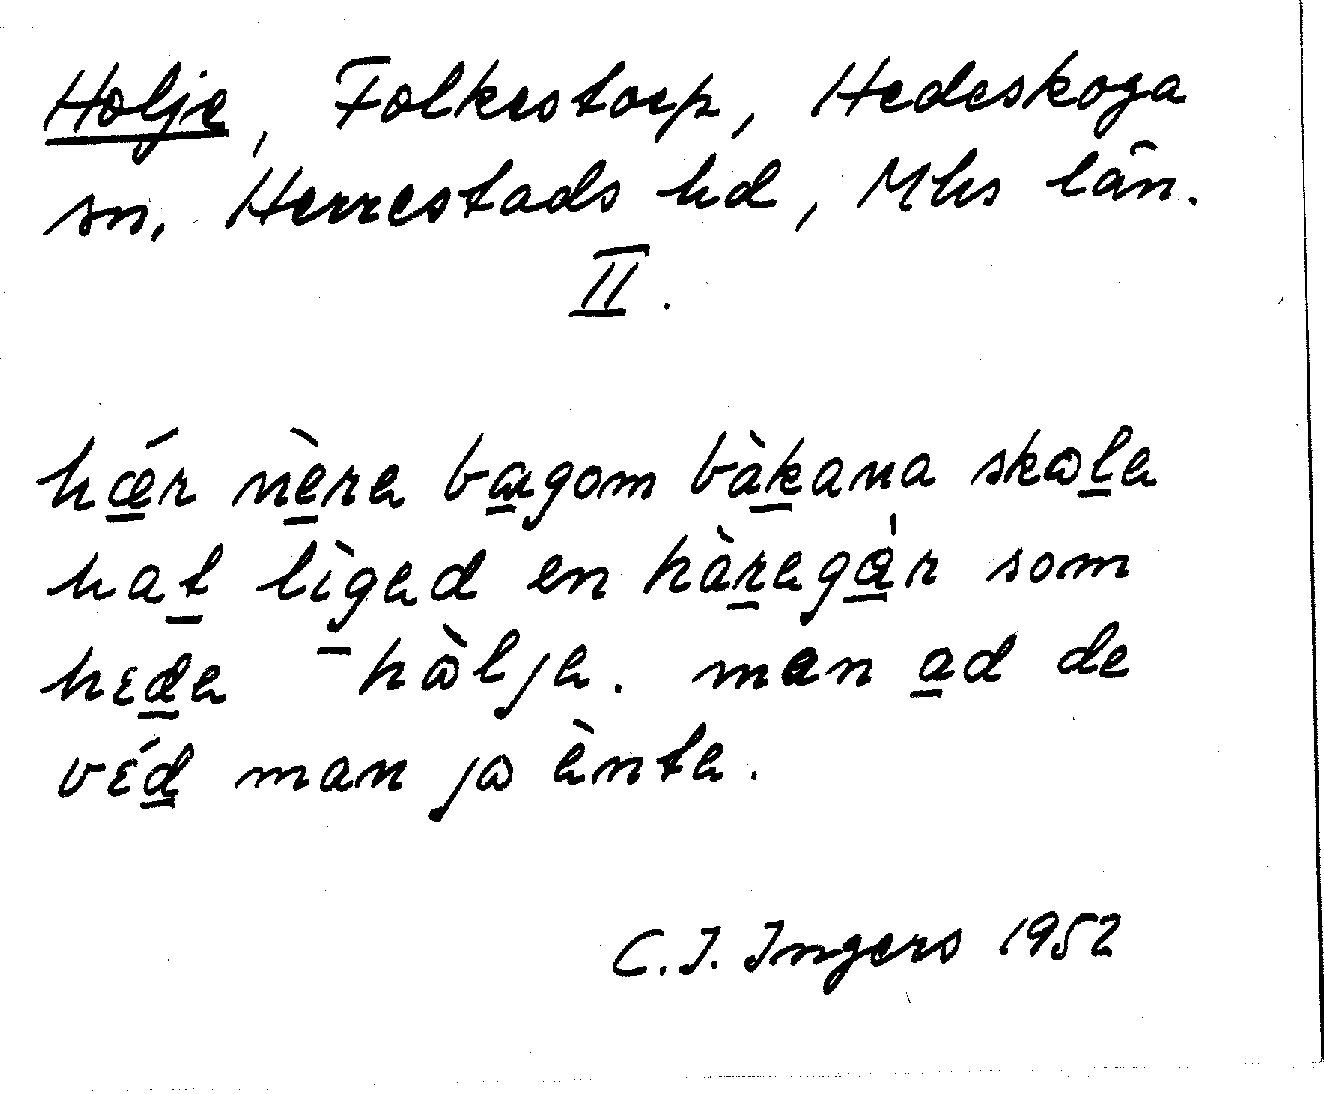 Holje, Folkestorp, Hedeskoga
sn, Herrestads hd, Mhs län.
II.
hǽ̱r nè̱ra ba̱gom bàḵana skɷḻa
haṯ lìg̱ad en hàṟagɑ̱̀r som
hɛḏa hɷ̀lja. man a̱d de
vɛ́ḏ man jɷ ènta.
C.I. Ingers 1952